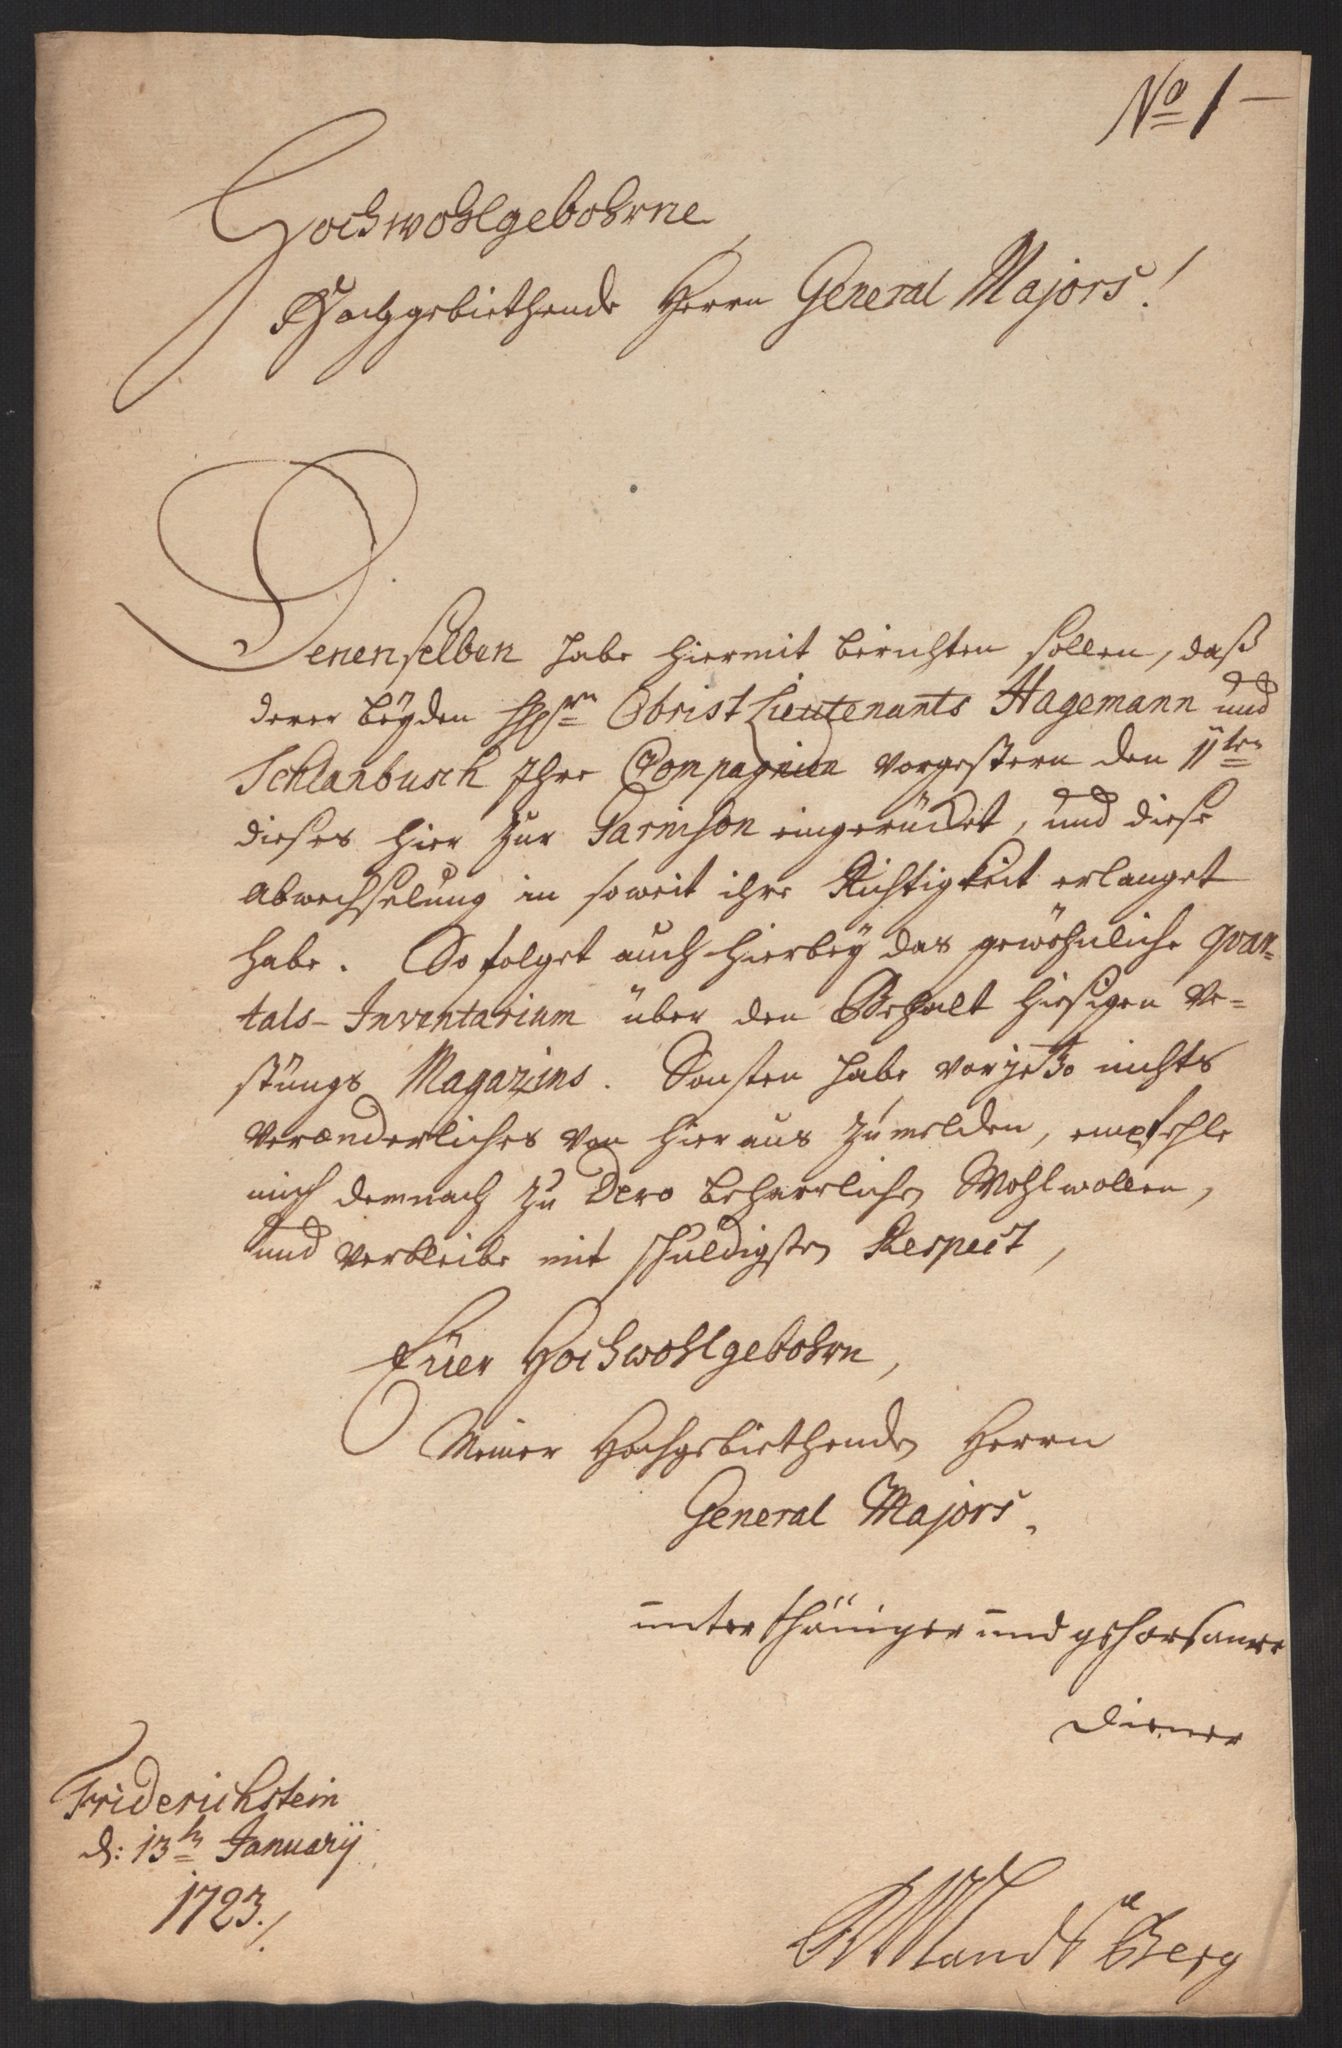 No 1
Hochwohlgebohrne
Hochgebiethende Herrn General Majors!
Denenselben habe hiermit berichten sollen, daß
derer beyden HHrn Obrist Lieutenants Hagemann und
Schlanbusch Ihre Compagnien vorgestern den 11ten
dieses hier zur Garnison eingerücket, und diese
Abwechselung in soweit ihre Richtigkeit erlanget
habe. So folget auch hierbey das gewöhnliche qvar-
tals-Inventarium über den Behalt hiesigen Ve-
stungs Magazins. Sonsten habe vor jetzo nichts
verænderliches von hier aus zu melden, empfehle
mich demnach zu Dero beharrlichen Wohlwollen,
und verbleibe mit schuldigsten Respect,
Eüer Hochwohlgebohrn,
Meiner Hochgebiethenden Herrn
General Majors.
unterthäniger und gehorsamer
diener
Friderichstein
d: 13tn Januarij
1723.
Landsberg